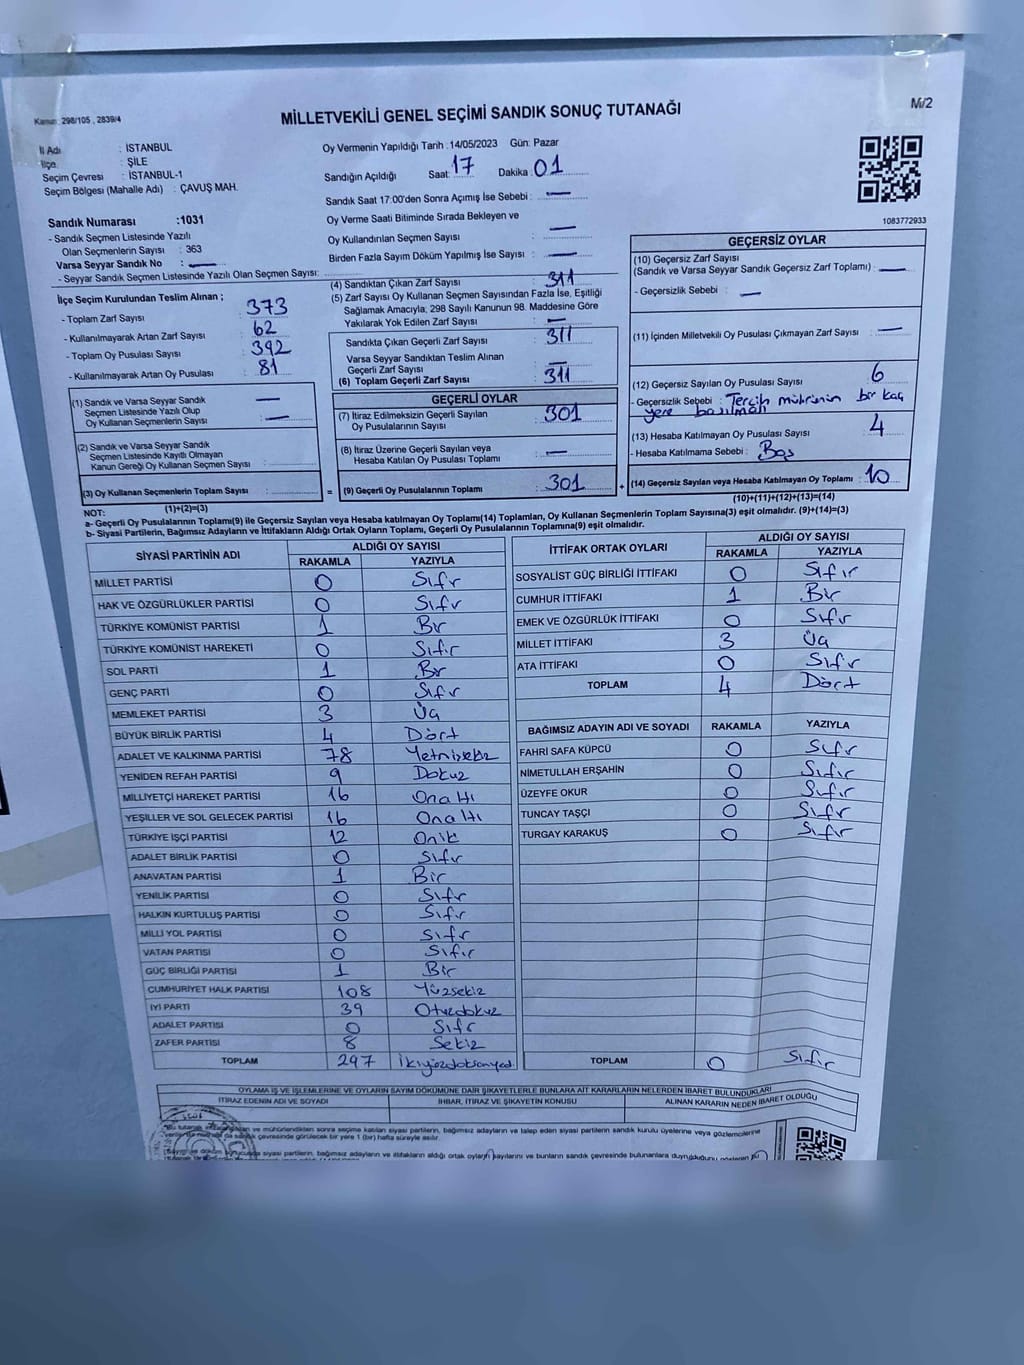 Kanun : 298/105 , 2839/4
MİLLETVEKİLİ GENEL SEÇİMİ SANDIK SONUÇ TUTANAĞI
M/2
İl Adı : İSTANBUL
İlçe : ŞİLE
Seçim Çevresi : İSTANBUL-1
Seçim Bölgesi (Mahalle Adı) : ÇAVUŞ MAH.
Oy Vermenin Yapıldığı Tarih : 14/05/2023 Gün: Pazar
Sandığın Açıldığı Saat: 17 Dakika : 01
Sandık Saat 17:00'den Sonra Açımış İse Sebebi : —
Oy Verme Saati Bitiminde Sırada Bekleyen ve
Oy Kullandırılan Seçmen Sayısı : —
Birden Fazla Sayım Döküm Yapılmış İse Sayısı : —
1083772933
Sandık Numarası :1031
- Sandık Seçmen Listesinde Yazılı
Olan Seçmenlerin Sayısı : 363
Varsa Seyyar Sandık No : —
- Seyyar Sandık Seçmen Listesinde Yazılı Olan Seçmen Sayısı:
İlçe Seçim Kurulundan Teslim Alınan ;
- Toplam Zarf Sayısı : 373
- Kullanılmayarak Artan Zarf Sayısı : 62
- Toplam Oy Pusulası Sayısı : 392
- Kullanılmayarak Artan Oy Pusulası : 81
(1) Sandık ve Varsa Seyyar Sandık
Seçmen Listesinde Yazılı Olup
Oy Kullanan Seçmenlerin Sayısı : —
(2) Sandık ve Varsa Seyyar Sandık
Seçmen Listesinde Kayıtlı Olmayan
Kanun Gereği Oy Kullanan Seçmen Sayısı :
(3) Oy Kullanan Seçmenlerin Toplam Sayısı :
(1)+(2)=(3)
(4) Sandıktan Çıkan Zarf Sayısı : 311
(5) Zarf Sayısı Oy Kullanan Seçmen Sayısından Fazla İse, Eşitliği
Sağlamak Amacıyla, 298 Sayılı Kanunun 98. Maddesine Göre
Yakılarak Yok Edilen Zarf Sayısı : —
Sandıkta Çıkan Geçerli Zarf Sayısı : 311
Varsa Seyyar Sandıktan Teslim Alınan
Geçerli Zarf Sayısı : —
(6) Toplam Geçerli Zarf Sayısı : 311
GEÇERLİ OYLAR
(7) İtiraz Edilmeksizin Geçerli Sayılan
Oy Pusulalarının Sayısı : 301
(8) İtiraz Üzerine Geçerli Sayılan veya
Hesaba Katılan Oy Pusulası Toplamı : —
= (9) Geçerli Oy Pusulalarının Toplamı : 301 +
GEÇERSİZ OYLAR
(10) Geçersiz Zarf Sayısı
(Sandık ve Varsa Seyyar Sandık Geçersiz Zarf Toplamı) : —
- Geçersizlik Sebebi : —
(11) İçinden Milletvekili Oy Pusulası Çıkmayan Zarf Sayısı : —
(12) Geçersiz Sayılan Oy Pusulası Sayısı : 6
- Geçersizlik Sebebi : Tercih mührünün bir kaç
yere basılması
(13) Hesaba Katılmayan Oy Pusulası Sayısı : 4
- Hesaba Katılmama Sebebi : Boş
(14) Geçersiz Sayılan veya Hesaba Katılmayan Oy Toplamı : 10
(10)+(11)+(12)+(13)=(14)
NOT:
a- Geçerli Oy Pusulalarının Toplamı(9) ile Geçersiz Sayılan veya Hesaba katılmayan Oy Toplamı(14) Toplamları, Oy Kullanan Seçmenlerin Toplam Sayısına(3) eşit olmalıdır. (9)+(14)=(3)
b- Siyasi Partilerin, Bağımsız Adayların ve İttifakların Aldığı Ortak Oyların Toplamı, Geçerli Oy Pusulalarının Toplamına(9) eşit olmalıdır.
SİYASİ PARTİNİN ADI ALDIĞI OY SAYISI
RAKAMLA YAZIYLA
MİLLET PARTİSİ 0 Sıfr
HAK VE ÖZGÜRLÜKLER PARTİSİ 0 Sıfır
TÜRKİYE KOMÜNİST PARTİSİ 1 Bir
TÜRKİYE KOMÜNİST HAREKETİ 0 Sıfır
SOL PARTİ 1 Bir
GENÇ PARTİ 0 Sıfır
MEMLEKET PARTİSİ 3 Üç
BÜYÜK BİRLİK PARTİSİ 4 Dört
ADALET VE KALKINMA PARTİSİ 78 Yetmişsekiz
YENİDEN REFAH PARTİSİ 9 Dokuz
MİLLİYETÇİ HAREKET PARTİSİ 16 Onaltı
YEŞİLLER VE SOL GELECEK PARTİSİ 16 Onaltı
TÜRKİYE İŞÇİ PARTİSİ 12 Oniki
ADALET BİRLİK PARTİSİ 0 Sıfır
ANAVATAN PARTİSİ 1 Bir
YENİLİK PARTİSİ 0 Sıfır
HALKIN KURTULUŞ PARTİSİ 0 Sıfır
MİLLİ YOL PARTİSİ 0 Sıfır
VATAN PARTİSİ 0 Sıfır
GÜÇ BİRLİĞİ PARTİSİ 1 Bir
CUMHURİYET HALK PARTİSİ 108 Yüzsekiz
İYİ PARTİ 39 Otuzdokuz
ADALET PARTİSİ 0 Sıfır
ZAFER PARTİSİ 8 Sekiz
TOPLAM 297 İkiyüzdoksanyedi
İTTİFAK ORTAK OYLARI ALDIĞI OY SAYISI
RAKAMLA YAZIYLA
SOSYALİST GÜÇ BİRLİĞİ İTTİFAKI 0 Sıfır
CUMHUR İTTİFAKI 1 Bir
EMEK VE ÖZGÜRLÜK İTTİFAKI 0 Sıfır
MİLLET İTTİFAKI 3 Üç
ATA İTTİFAKI 0 Sıfır
TOPLAM 4 Dört
BAĞIMSIZ ADAYIN ADI VE SOYADI RAKAMLA YAZIYLA
FAHRİ SAFA KÜPCÜ 0 Sıfır
NİMETULLAH ERŞAHİN 0 Sıfır
ÜZEYFE OKUR 0 Sıfır
TUNCAY TAŞÇI 0 Sıfır
TURGAY KARAKUŞ 0 Sıfır
TOPLAM 0 Sıfır
OYLAMA İŞ VE İŞLEMLERİNE VE OYLARIN SAYIM DÖKÜMÜNE DAİR ŞİKAYETLERLE BUNLARA AİT KARARLARIN NELERDEN İBARET BULUNDUKLARI
İTİRAZ EDENİN ADI VE SOYADI İHBAR, İTİRAZ VE ŞİKAYETİN KONUSU ALINAN KARARIN NEDEN İBARET OLDUĞU
ve mühürlendikten sonra seçime katılan siyasi partilerin, bağımsız adayların ve talep eden siyasi partilerin sandık kurulu üyelerine veya gözlemcilerine
çevresinde görülecek bir yere 1 (bir) hafta süreyle asılır.
siyasi partilerin, bağımsız adayların ve ittifakların aldığı ortak oyların sayılarını ve bunların sandık çevresinde bulunanlara duyurulduğunu